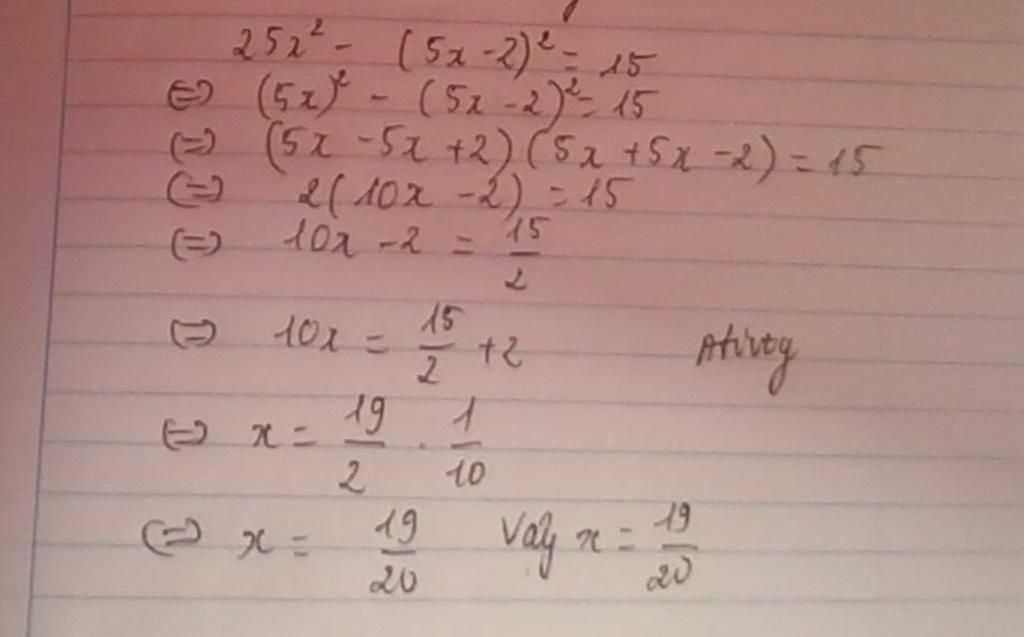 25x² - (5x-2)² = 15
⇔ (5x)² - (5x-2)² = 15
⇔ (5x - 5x + 2)(5x + 5x - 2) = 15
⇔ 2(10x - 2) = 15
⇔ 10x - 2 = 15/2
⇔ 10x = 15/2 + 2
⇔ x = 19/2 . 1/10
⇔ x = 19/20 Vậy x = 19/20